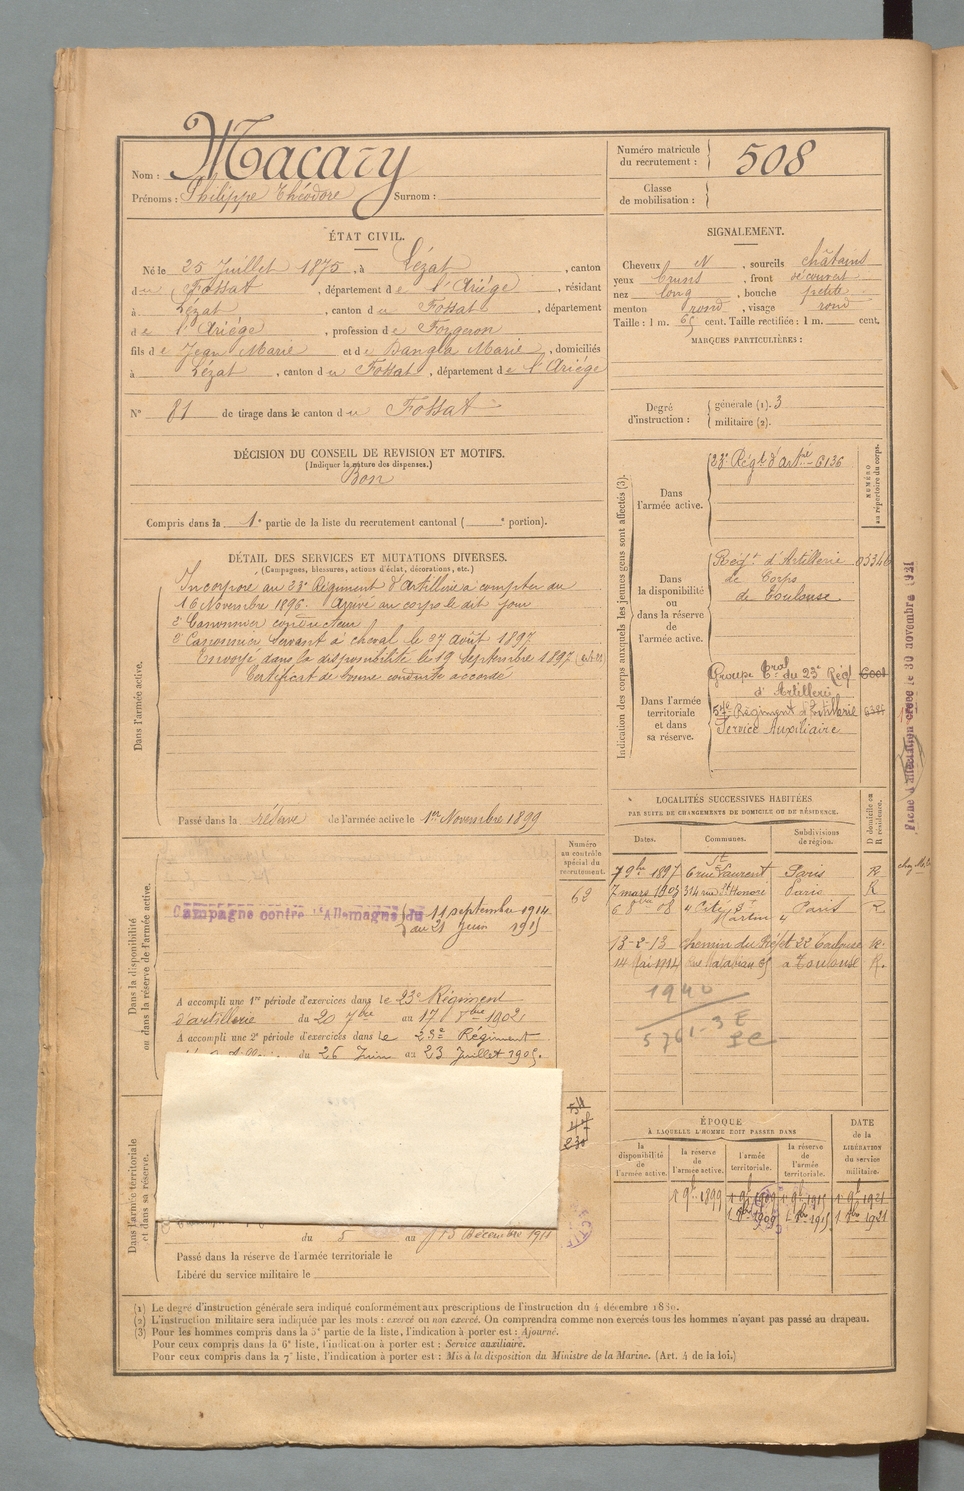 Nom : Macary
Prénoms : Philippe Théodore Surnom :
Numéro matricule du recrutement : 508
Classe de mobilisation :
ÉTAT CIVIL.
Né le 25 Juillet 1875, à Lézat, canton
du Fossat, département de l'Ariége, résidant
à Lézat, canton du Fossat, département
de l'Ariége, profession de Forgeron
fils de Jean Marie et de Dangla Marie, domiciliés
à Lézat, canton du Fossat, département de l'Ariége
N° 81 de tirage dans le canton du Fossat
SIGNALEMENT.
Cheveux N, sourcils châtains
yeux bruns, front découvert
nez long, bouche petite
menton rond, visage rond
Taille : 1 m. 65 cent. Taille rectifiée : 1 m. cent.
MARQUES PARTICULIÈRES :
Degré d'instruction : générale (1). 3
militaire (2).
DÉCISION DU CONSEIL DE REVISION ET MOTIFS.
(Indiquer la nature des dispenses.)
Bon
Compris dans la 1e partie de la liste du recrutement cantonal ( e portion).
DÉTAIL DES SERVICES ET MUTATIONS DIVERSES.
(Campagnes, blessures, actions d'éclat, décorations, etc.)
Dans l'armée active.
Incorporé au 23e Régiment d'Artillerie à compter du
16 Novembre 1896. Arrivé au corps le dit jour
2e Canonnier conducteur
2e Canonnier servant à cheval le 27 août 1897
Envoyé dans la disponibilité le 19 septembre 1897
Certificat de bonne conduite accordé
Passé dans la réserve de l'armée active le 1er Novembre 1899
Indication des corps auxquels les jeunes gens sont affectés (3).
NUMÉRO au répertoire du corps.
Dans l'armée active.
23e Régt d'Artrie 6136
Dans la disponibilité ou dans la réserve de l'armée active.
Régt d'Artillerie
de Corps
de Toulouse.
Dans l'armée territoriale et dans sa réserve.
Groupe Trial du 23e Rég
d'Artillerie
57e Régiment d'Artillerie
Service Auxiliaire
Fiche d'affectation créée le 30 novembre 1921
LOCALITÉS SUCCESSIVES HABITÉES
PAR SUITE DE CHANGEMENTS DE DOMICILE OU DE RÉSIDENCE.
Dates. Communes. Subdivisions de région. D domicile ou R résidence.
7 9bre 1897 6 rue St Laurent Paris R
7 mars 1903 314 rue St Honoré Paris R
6 8bre 08 4 City St Martin Paris R
13-2-13 chemin du 22 Toulouse R.
14 Mai 1914 à Toulouse R.
1940
5761-3E
Dans la disponibilité ou dans la réserve de l'armée active.
Numéro au contrôle spécial du recrutement.
62
Campagne contre l'Allemagne du 11 septembre 1914
au 21 Juin 1915
A accompli une 1re période d'exercices dans le 23e Régiment
d'artillerie du 20 7bre au 17 8bre 1902.
A accompli une 2e période d'exercices dans le 23e Régiment
du 26 Juin au 23 Juillet 1905.
Dans l'armée territoriale et dans sa réserve.
du 5 au 13 Décembre 1911
Passé dans la réserve de l'armée territoriale le
Libéré du service militaire le
ÉPOQUE
À LAQUELLE L'HOMME DOIT PASSER DANS
DATE de la LIBÉRATION du service militaire.
la disponibilité de l'armée active. la réserve de l'armée active. l'armée territoriale. la réserve de l'armée territoriale.
1 9bre 1899 1 9bre 1909 1 9bre 1915 1 9bre 1921
1 8bre 1909 1 8bre 1915 1 8bre 1921
(1) Le degré d'instruction générale sera indiqué conformément aux prescriptions de l'instruction du 4 décembre 1889.
(2) L'instruction militaire sera indiquée par les mots : exercé ou non exercé. On comprendra comme non exercés tous les hommes n'ayant pas passé au drapeau.
(3) Pour les hommes compris dans la 5e partie de la liste, l'indication à porter est : Ajourné.
Pour ceux compris dans la 6e liste, l'indication à porter est : Service auxiliaire.
Pour ceux compris dans la 7e liste, l'indication à porter est : Mis à la disposition du Ministre de la Marine. (Art. 4 de la loi.)